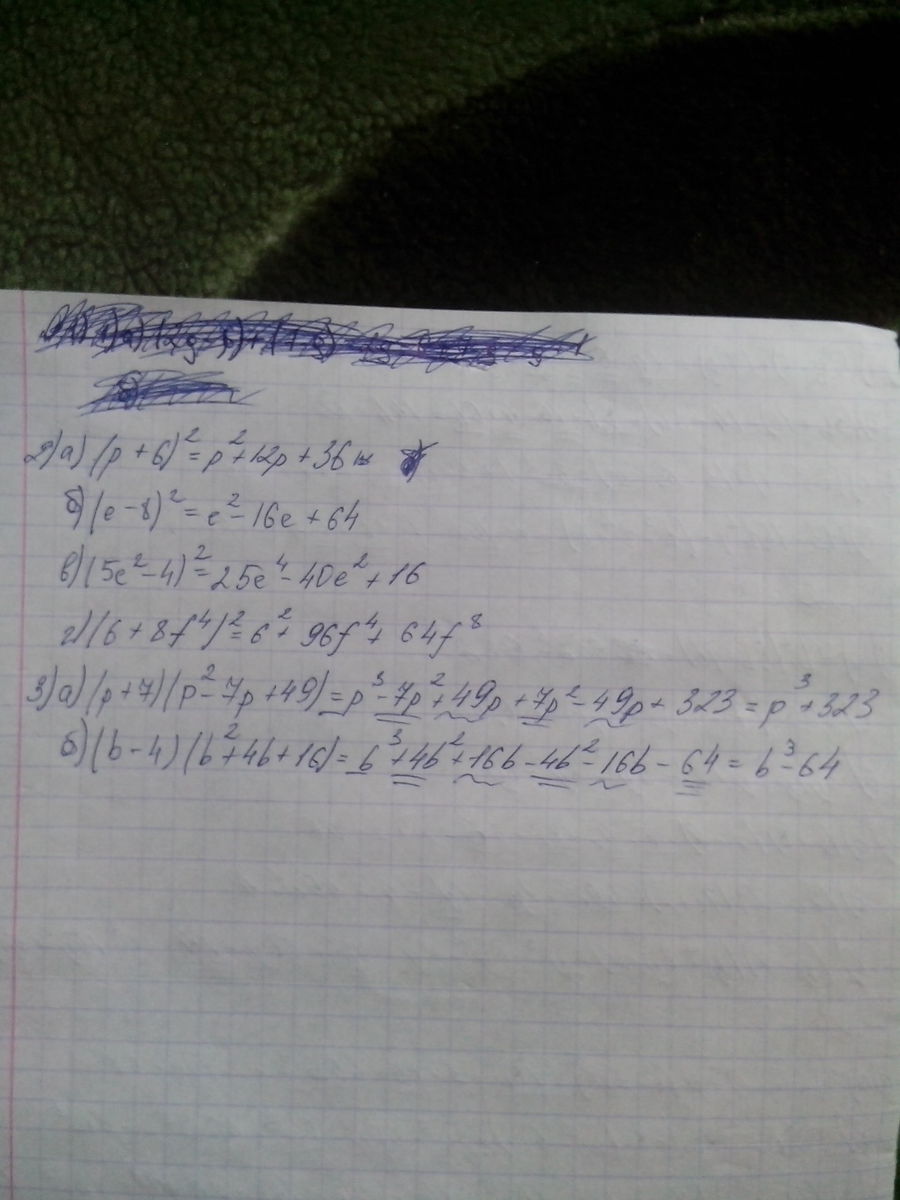 2) а) (p + 6)² = p² + 12p + 36
б) (e - 8)² = e² - 16e + 64
в) (5e² - 4)² = 25e⁴ - 40e² + 16
г) (6 + 8f⁴)² = 6² + 96f⁴ + 64f⁸
3) а) (p + 7) (p² - 7p + 49) = p³ - 7p² + 49p + 7p² - 49p + 323 = p³ + 323
б) (b - 4) (b² + 4b + 16) = b³ + 4b² + 16b - 4b² - 16b - 64 = b³ - 64